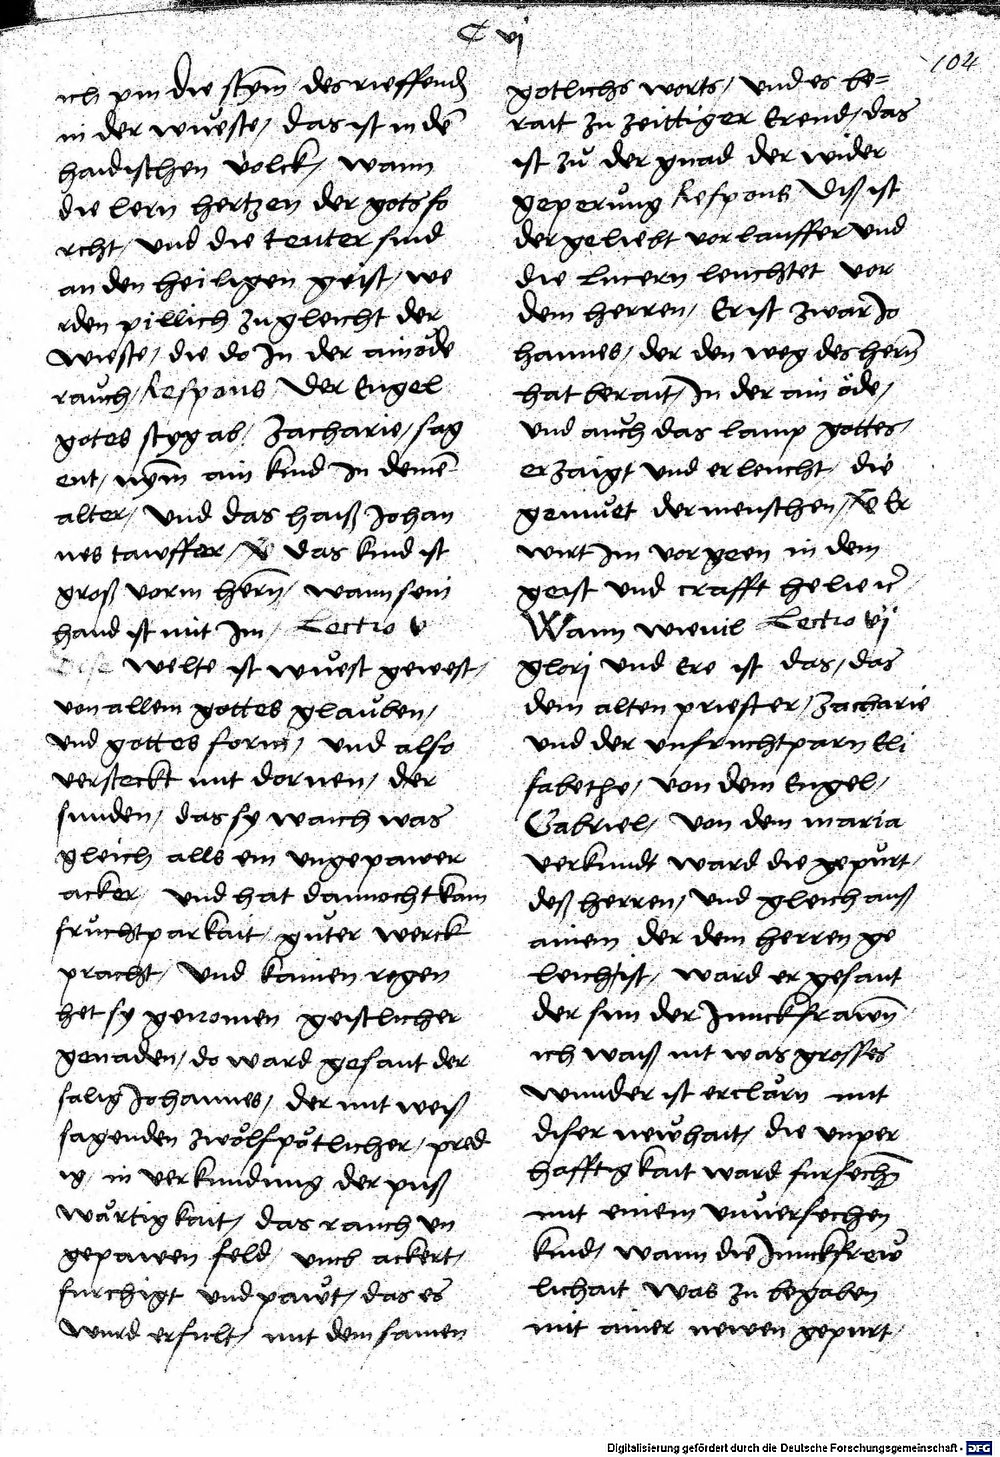 C vj
104
ich pin die stym̄ des rieffend̄
in der wüeste / das ist in dē
haidischen volck / wann
die lern hertzen der gots fo
rcht / und die teuter sind
an den heiligen geist / we
rden pillich zu gleicht der
wieste / die do In der ainöde
rauch / Respons Der Engel
gotes styg ab / Zacharie / sag
ent / nym̄ ain kind In deinē
alter / und das haiß Johan
nes tawffer / V̄s das kind ist
groß vorm hern̄ / wann sein
hand ist mit Im / Lectio v
Dise welte ist wüest gewest /
von allem gottes glauben /
und gottes form / und also
versteckt mit dornen / der
sunden / das sy waich was
gleich alls ein ungepawer
acker / und hat dannocht kain
fruchtparkait guter werck
pracht / und kainen regen
het sy genomen geistlicher
genaden / do ward gesant der
salig Johannes / der mit weiß
sagenden zwölfpötlicher / pred
ig / in verkundung der puß
wärtigkait / das rauch un
gepawen feld / umb ackert /
furchigt und pawt / das es
wurd erfult / mit dem samen
gotlichs worts / und es be=
rait zu zeittiger Erend / das
ist zu der gnad der wider
geperung Respons Diß ist
der geliebt vorlauffer und
die lucern leuchtet vor
dem herren / Er ist zwar Jo
hannes / der den weg des hern̄
hat berait / In der ain öde /
und auch das lamp gottes /
erzaigt und erleucht / die
gemüet der menschen / V̄s Er
wirt Im vorgeen in dem
geist und crafft helie ꝛc̄
Wann wievil Lectio vj
glori und Ere ist das / das
dem alten priester / Zacharie
und der unfruchtparn Eli
sabethe / von dem Engel /
Gabriel / von dem maria
verkundt ward die gepurt /
deß herren / und gleich auß
ainem der dem herren ge
leich ist / ward er gesant
der sun der Junckfrawn̄
ich waiß nit was grosses
wunder ist erclärn mit
diser newhait / die unper
hafftigkait ward fursech̄n
mit einem unversechen
kind / wann die Junckfrew
lichait was zu begaben
mit ainer newen gepurt /
Digitalisierung gefördert durch die Deutsche Forschungsgemeinschaft - DFG